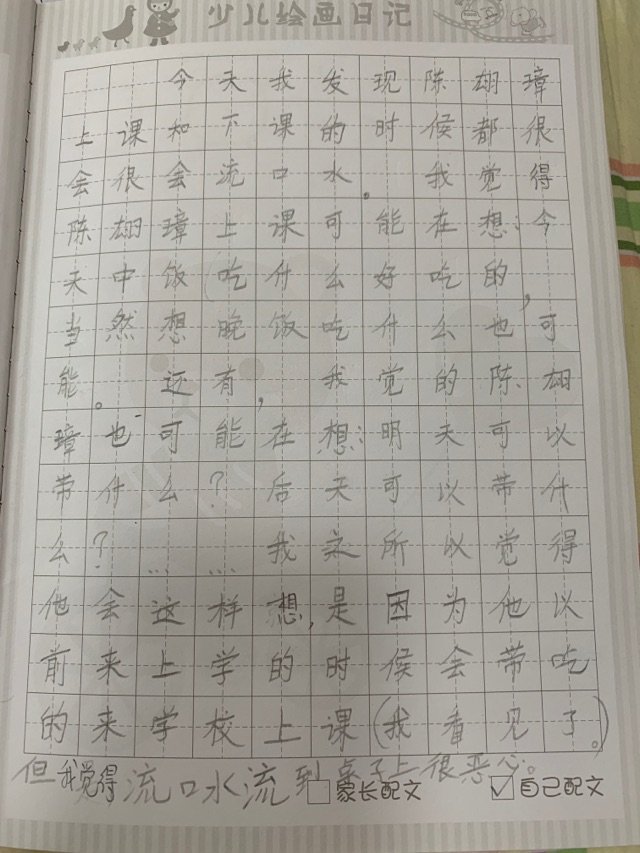 少儿绘画日记
今天我发现陈翃璋
上课和下课的时候都很
会很会流口水。我觉得
陈翃璋上课可能在想:今
天中饭吃什么好吃的,
当然想晚饭吃什么也可
能。还有,我觉的陈翃
璋也可能在想:明天可以
带什么?后天可以带什
么?……我之所以觉得
他会这样想,是因为他以
前来上学的时候会带吃
的来学校上课(我看见了。)
但我觉得流口水流到桌子上很恶心。
家长配文 自己配文